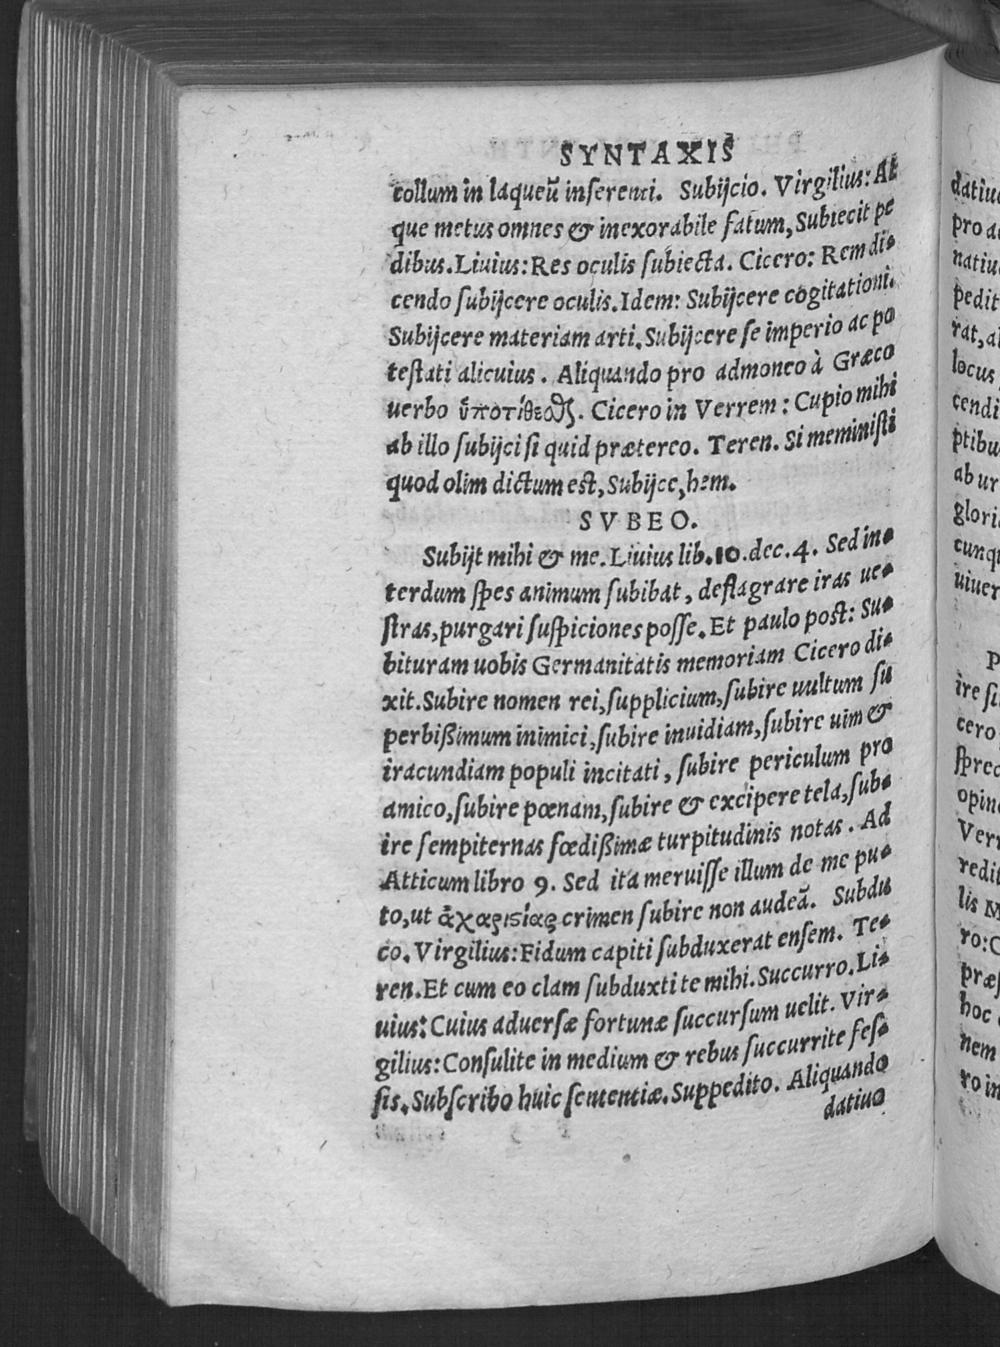 SYNTAXIS
collum in laqueũ inserenti. Subijcio. Virgilius: At
que metus omnes & inexorabile fatum, Subiecit pe
dibus. Liuius: Res oculis subiecta. Cicero: Rem di-
cendo subijcere oculis. Idem: Subijcere cogitationi.
Subijcere materiam arti. Subijcere se imperio ac po
testati alicuius. Aliquando pro admoneo à Græco
uerbo ὑποτίθεσθαι. Cicero in Verrem: Cupio mihi
ab illo subijci si quid prætereo. Teren. Si meministi
quod olim dictum est, Subijce, hem.
SVBEO.
Subijt mihi & me. Liuius lib. 10. dec. 4. Sed in-
terdum spes animum subibat, deflagrare iras ue-
stras, purgari suspiciones posse. Et paulo post: Su-
bituram uobis Germanitatis memoriam Cicero di-
xit. Subire nomen rei, supplicium, subire uultum su
perbißimum inimici, subire inuidiam, subire uim &
iracundiam populi incitati, subire periculum pro
amico, subire pœnam, subire & excipere tela, sub-
ire sempiternas fœdißimæ turpitudinis notas. Ad
Atticum libro 9. Sed ita meruisse illum de me pu-
to, ut ἀχαριστίας crimen subire non audeã. Subdu
co. Virgilius: Fidum capiti subduxerat ensem. Te-
ren. Et cum eo clam subduxti te mihi. Succurro. Li-
uius: Cuius aduersæ fortunæ succursum uelit. Vir-
gilius: Consulite in medium & rebus succurrite fes-
sis. Subscribo huic sententiæ. Suppedito. Aliquando
datiuo
datiu
pro a
natiu
pedit
rat, a
locus
cendi
ptibu
ab ur
glori
cunq
uiuer
P
ire si
cero
spre
opin
Verr
redit
lis M
ro: C
præ
hoc
nem
ro in